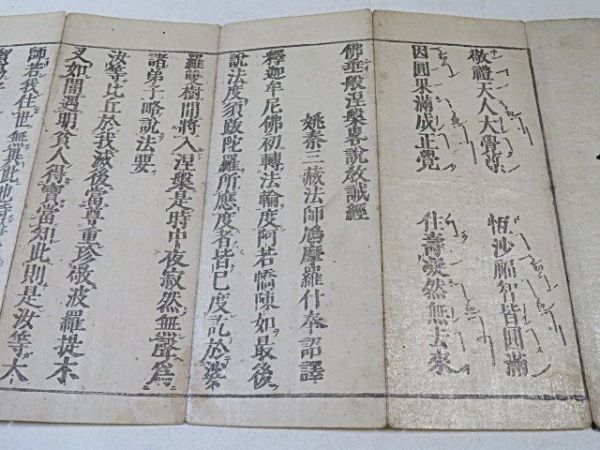 敬禮天人大覺尊 恒沙福智皆圓滿
因圓果滿成正覺 住壽凝然無去來
佛垂般涅槃畧說教誡經
姚秦三藏法師鳩摩羅什奉詔譯
釋迦牟尼佛初轉法輪度阿若憍陳如最後
說法度須跋陀羅所應度者皆已度訖於娑
羅雙樹間將入涅槃是時中夜寂然無聲爲
諸弟子略說法要
汝等比丘於我滅後當尊重珍敬波羅提木
叉如闇遇明貧人得寶當知此則是汝等大
師若我住世無異此也